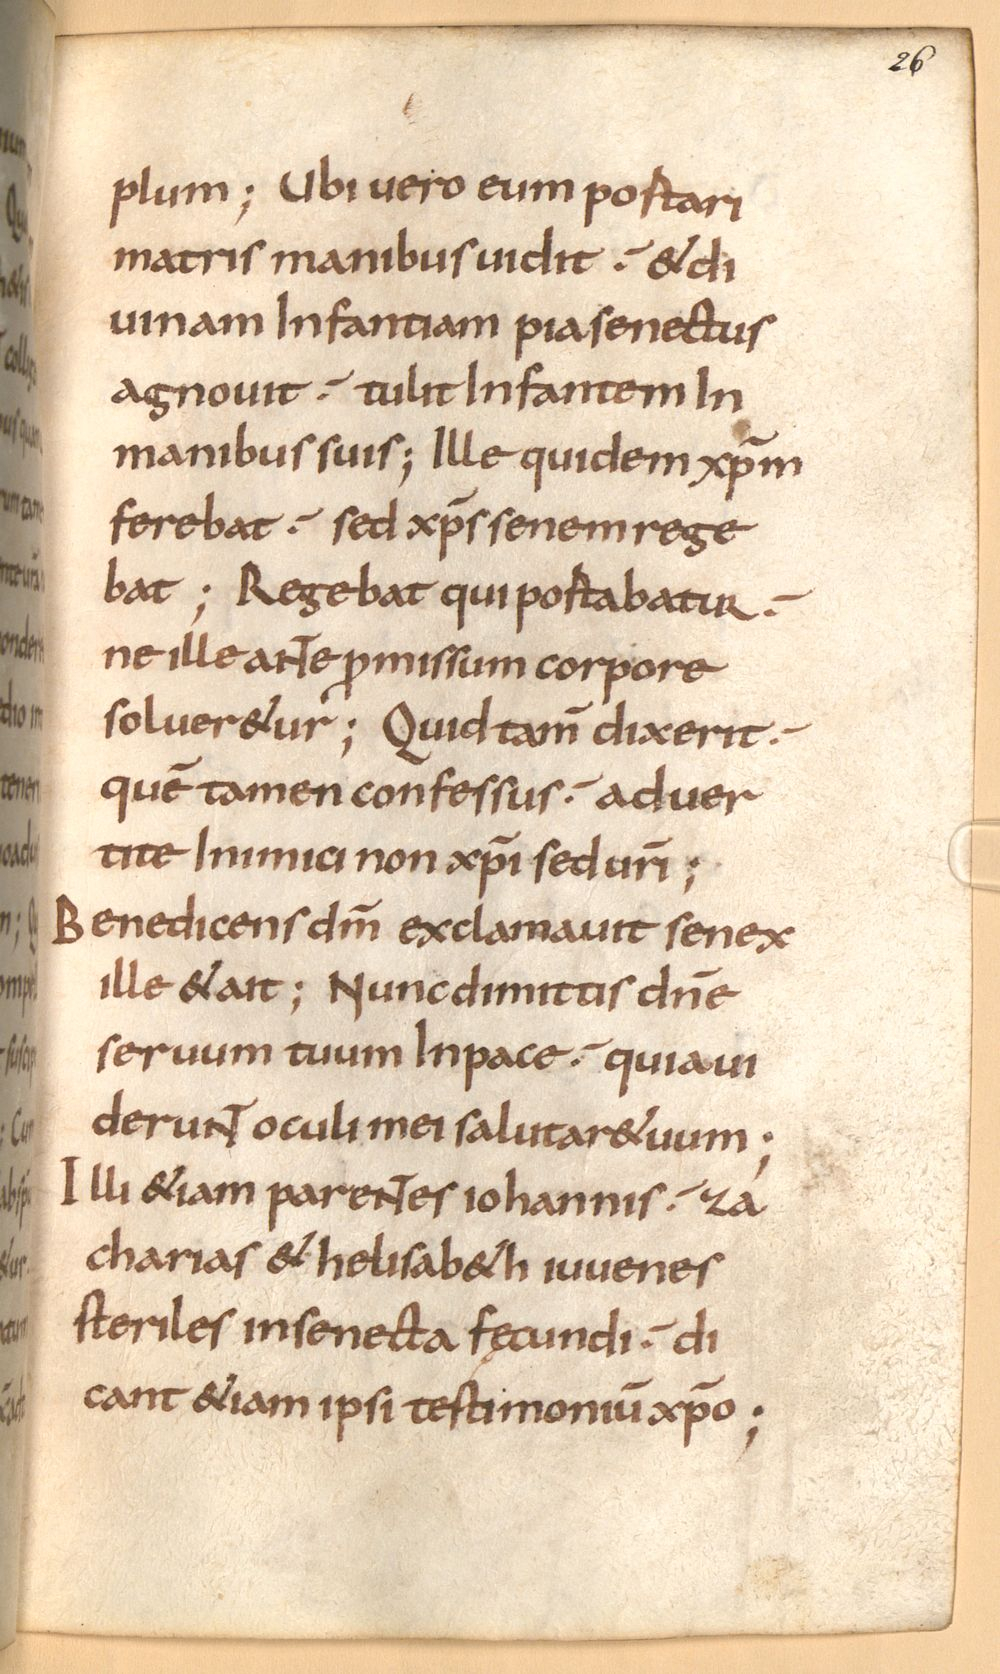 26
plum; Ubi uero eum portari
matris manibus uidit · & di
uinam Infantiam pia senectus
agnouit · tulit Infantem In
manibus suis; Ille quidem xp̄m
ferebat · sed xp̄s senem rege
bat; Regebat qui portabatur ·
ne ille ante ꝓmissum corpore
soluer&ur; Quid tam̄ dixerit ·
quē tamen confessus · aduer
tite Inimici non xp̄i sed ur̄i;
Benedicens dm̄ exclamauit senex
ille & ait; Nunc dimittis dn̄e
seruum tuum In pace · quia ui
derunt oculi mei salutar& uum;
Illi &iam parentes iohannis · za
charias & helisab&h iuuenes
steriles in senecta fęcundi · di
cant &iam ipsi testimoniū xp̄o;